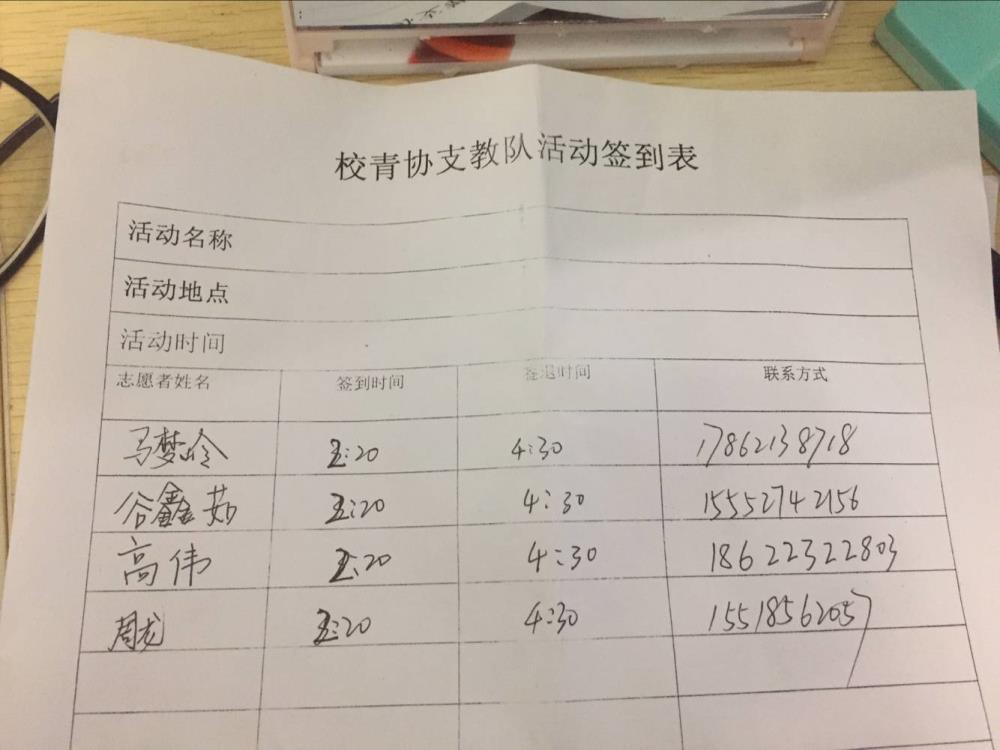 校青协支教队活动签到表
活动名称
活动地点
活动时间
志愿者姓名 签到时间 签退时间 联系方式
马梦岭 2:20 4:30 17862138718
谷鑫茹 2:20 4:30 15552742156
高伟 2:20 4:30 18622322803
周龙 2:20 4:30 15518562057